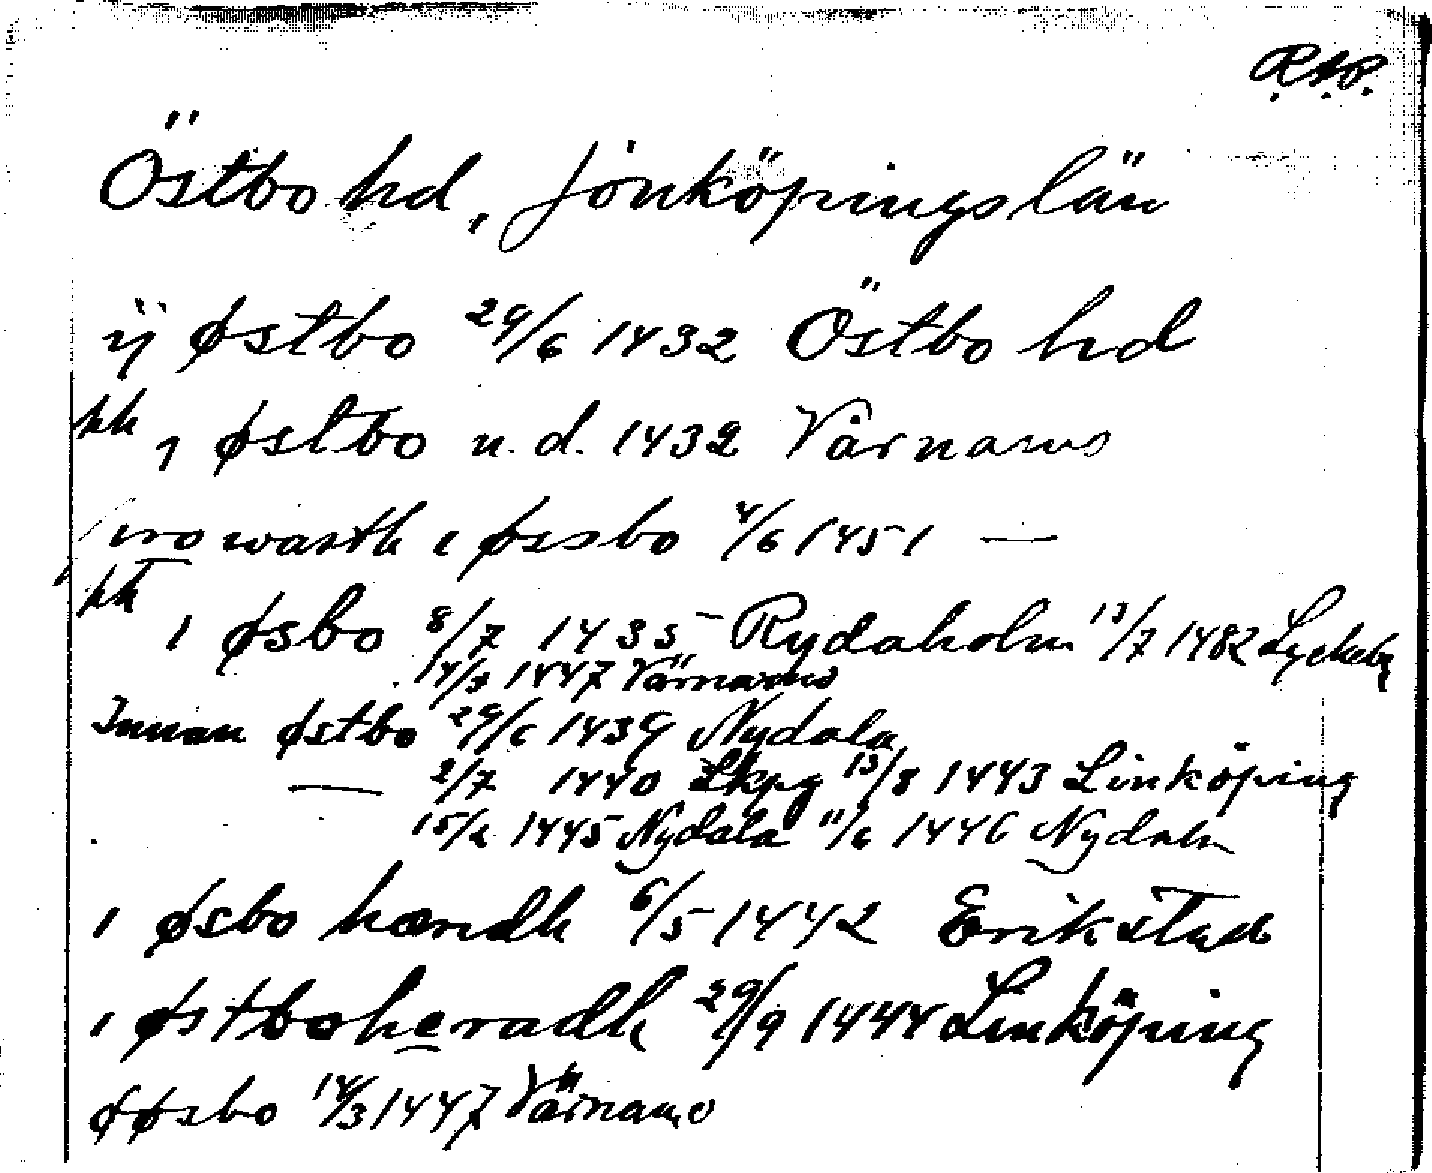 R.A.P.
Östbo hd, Jönköpings län
ij østbo 29/6 1432 Östbo hd
hk ı østbo u.d. 1432 Värnamo
wasth ı øssbo 4/6 1451 —
hk ı øsbo 8/7 1435 – Rydaholm 13/7 1482 Lyckeby
14/3 1447 Värnamo
Innan østbo 29/6 1439 Nydala
— 2/7 1440 Lkpg 13/8 1443 Linköping
1445 Nydala 11/6 1446 Nydala
ı øsbo hærdh 6/5 1442 Erikstad
ı østboheradh 29/9 1444 Linköping
øsbo 14/3 1447 Värnamo